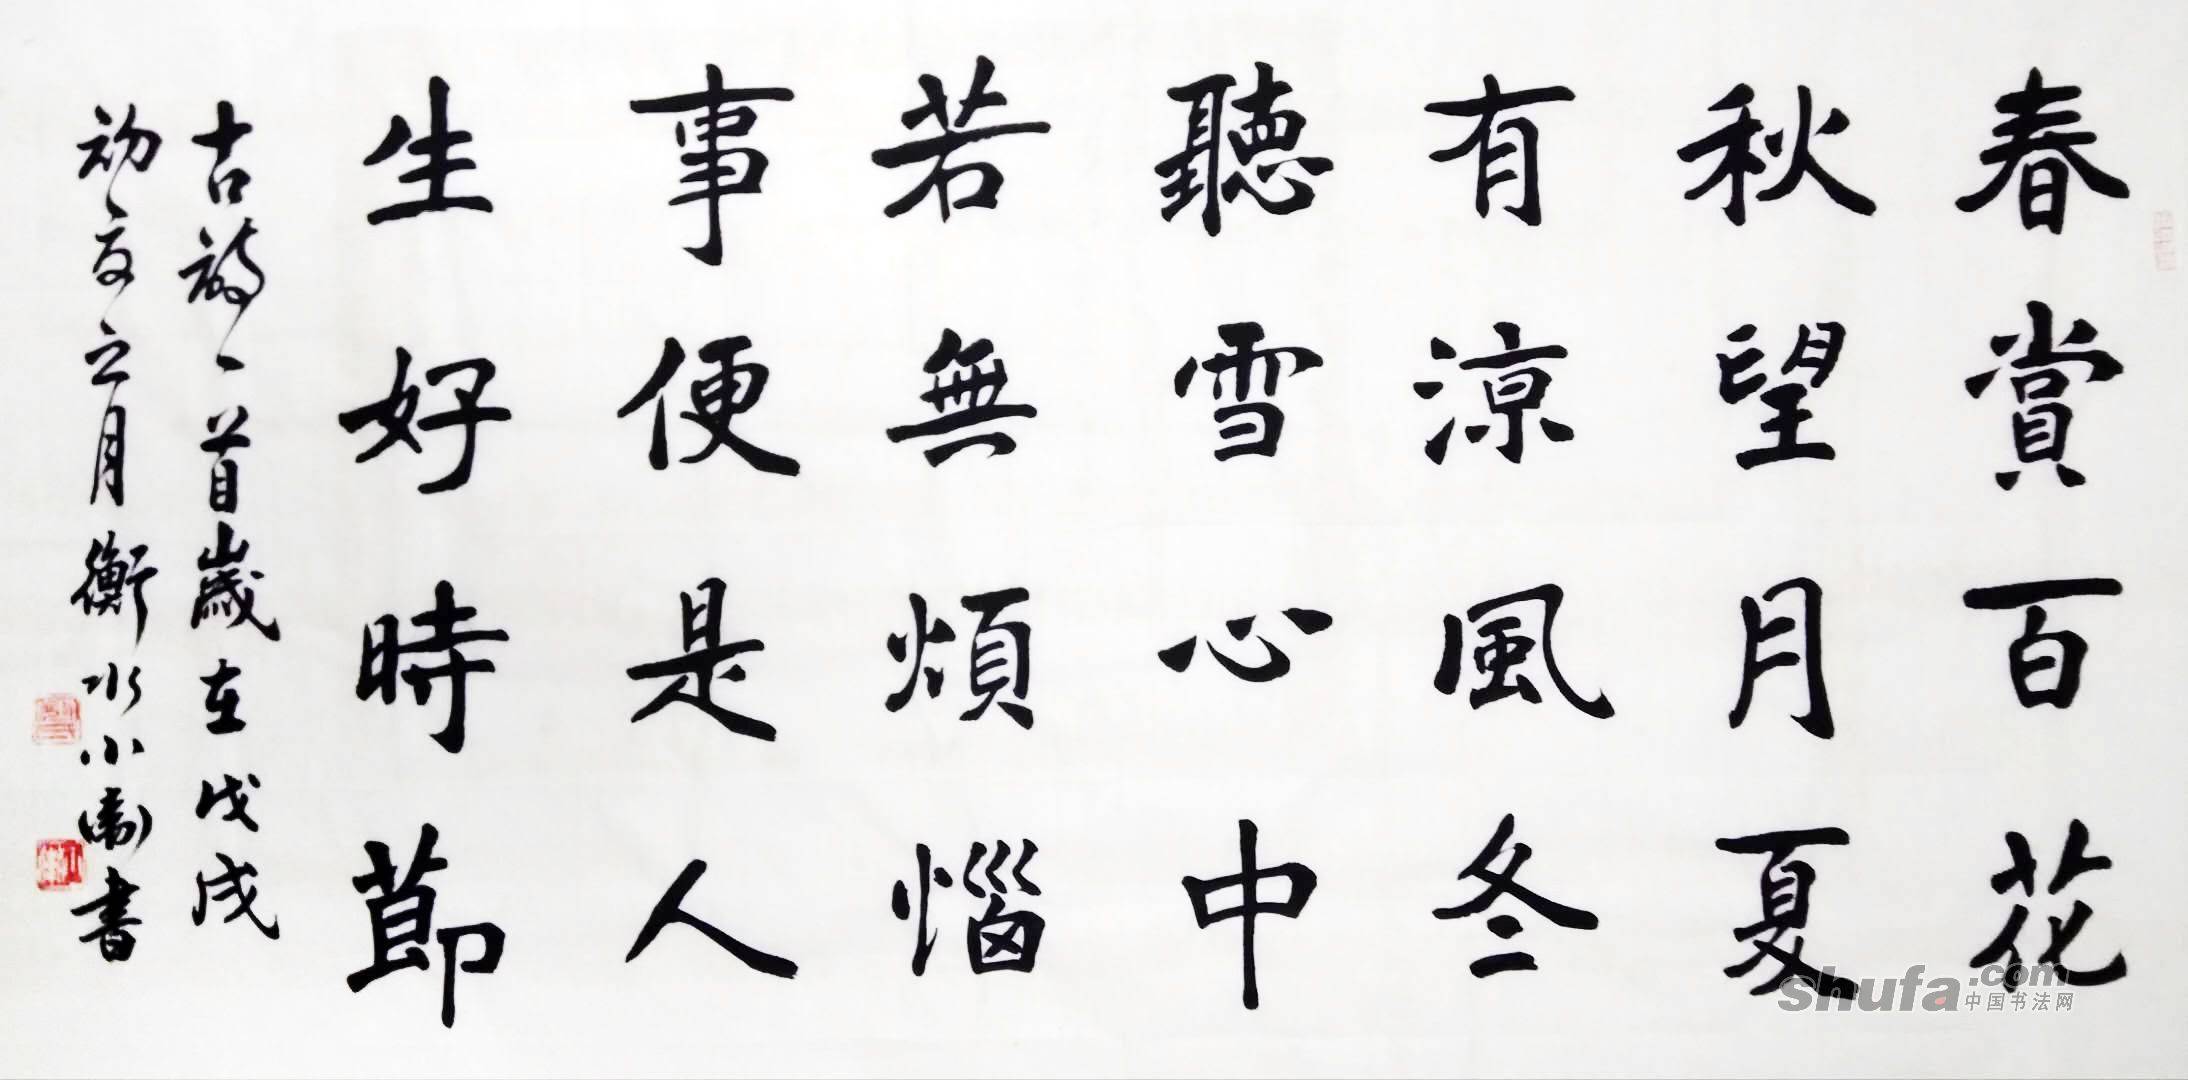 春賞百花
秋望月夏
有涼風冬
聽雪心中
若無煩惱
事便是人
生好時節
古詩一首歲在戊戌
初夏之月衡水小衛書
shufa.com
中国书法网